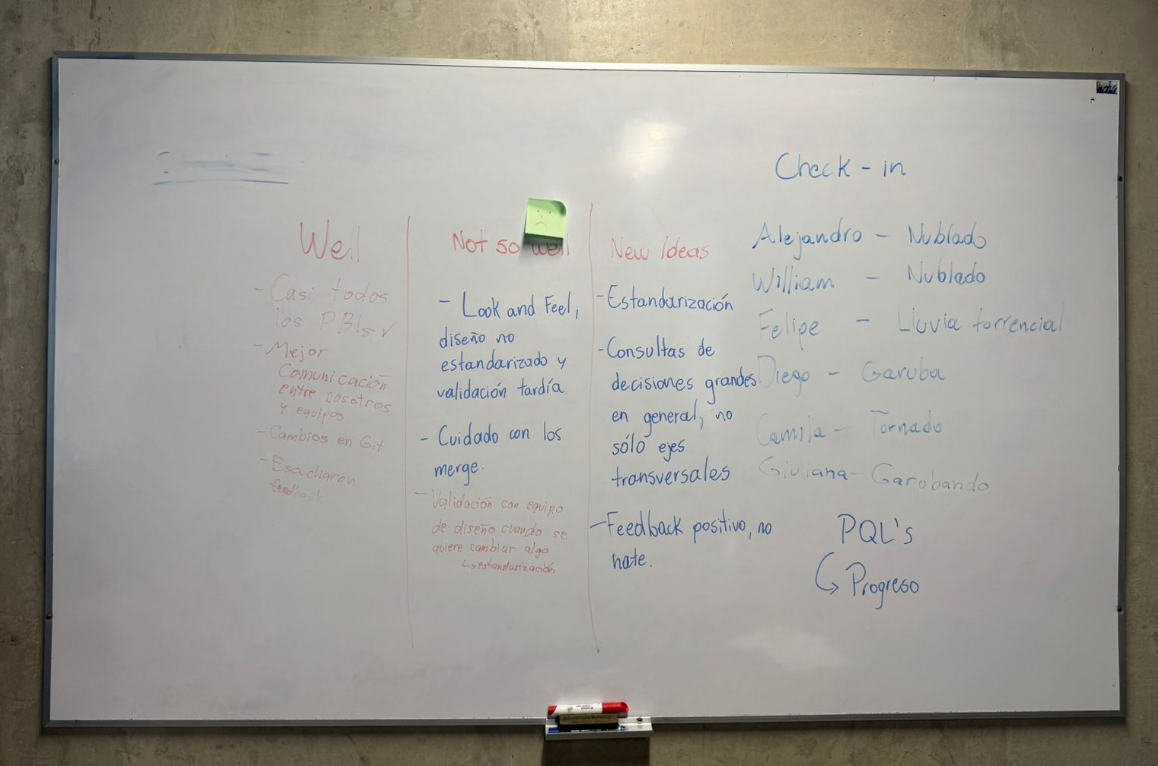 Well
- Casi todos
los PBIs ✓
- Mejor
Comunicación
entre nosotros
y equipos
- Cambios en Git
- Escucharon
feedback
Not so well
- Look and Feel,
diseño no
estandarizado y
validación tardía.
- Cuidado con los
merge.
- Validación con equipo
de diseño cuando se
quiere cambiar algo
↳ estandarización
New Ideas
- Estandarización
- Consultas de
decisiones grandes
en general, no
sólo ejes
transversales
- Feedback positivo, no
hate.
Check - in
Alejandro - Nublado
William - Nublado
Felipe - Lluvia torrencial
Diego - Garuba
Camila - Tornado
Giuliana - Garobando
PQL's
↳ Progreso